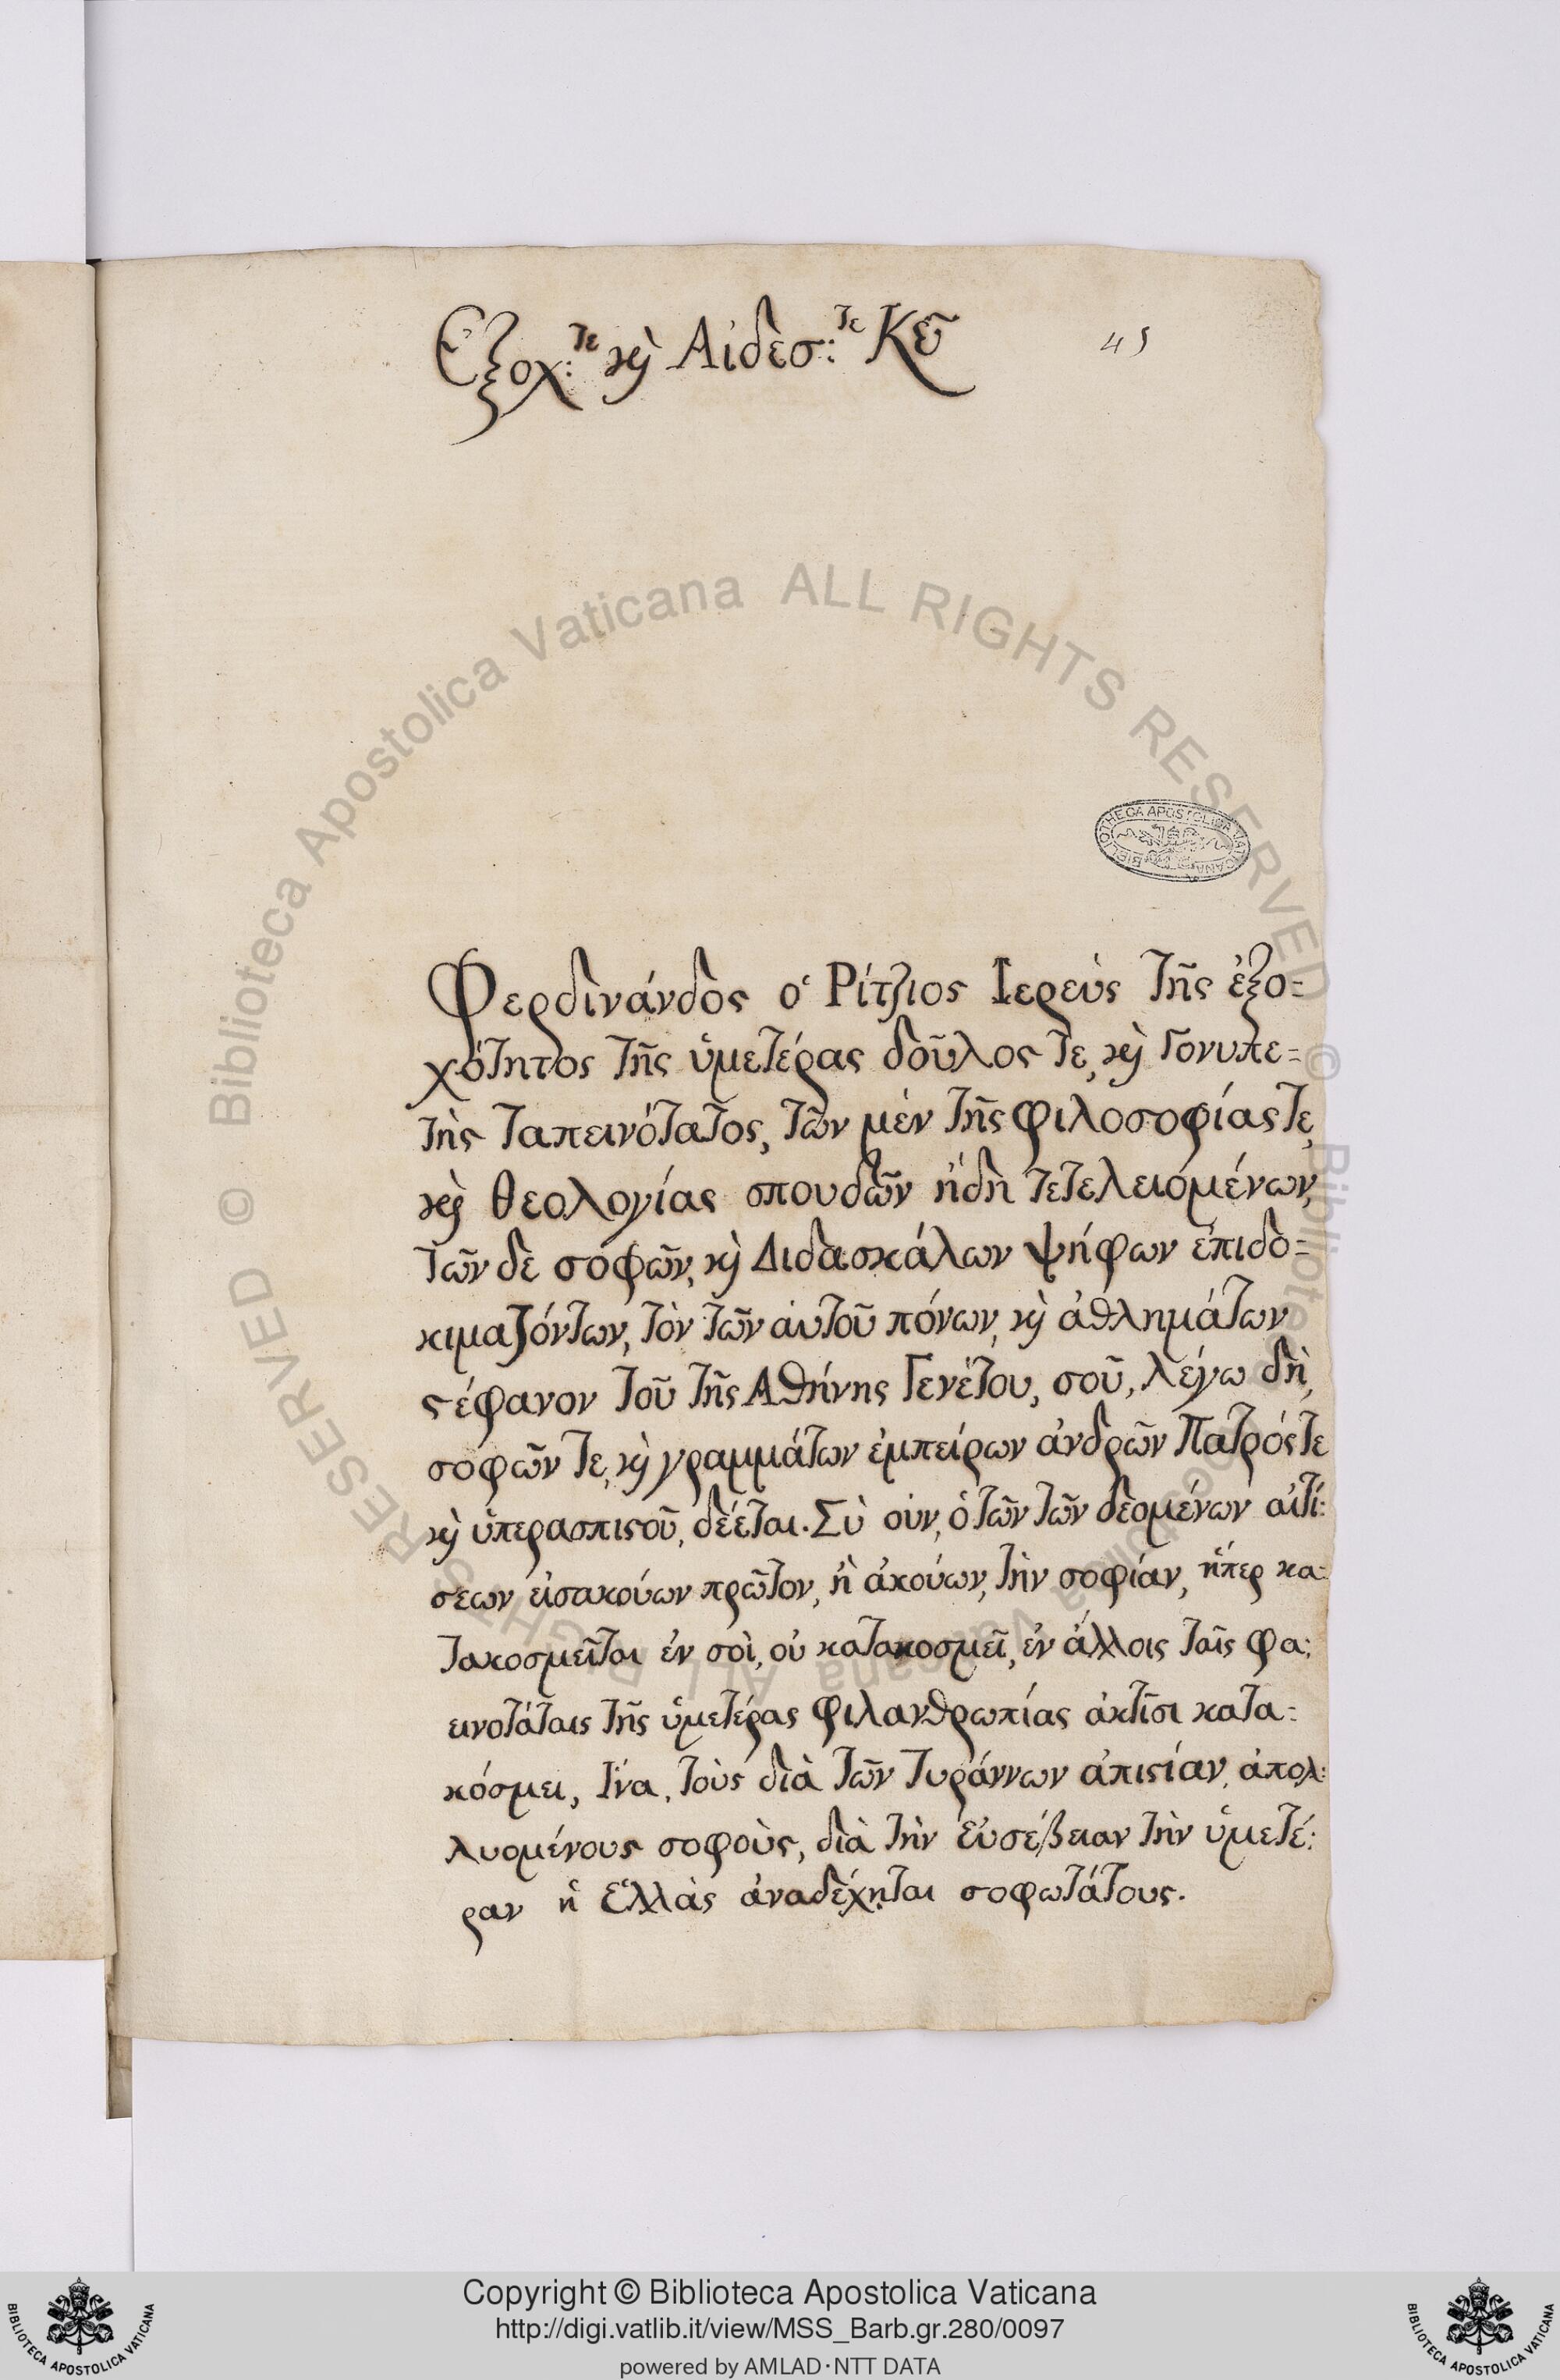 Ἐξοχ:τε κὴ Αἰδὲσ:τε Κε̃
45
Φερδινάνδος ὁ Ρίτζιος Ιερεὺς τῆς ἐξο=
χότητος τῆς ὑμετέρας δοῦλος τε, κὴ Γονυπε=
τὴς ταπεινότατος, τῶν μὲν τῆς φιλοσοφίας τε,
κὴ θεολογίας σπουδῶν ἤδη τετελειομένων,
τῶν δὲ σοφῶν, κὴ Διδασκάλων ψήφων ἐπιδο=
κιμαζόντων, τὸν τῶν αὑτοῦ πόνων, κὴ ἀθλημάτων
ϛέφανον τοῦ τῆς Αθήνης Γενέτου, σοῦ, λέγω δὴ,
σοφῶν τε, κὴ γραμμάτων ἐμπείρων ἀνδρῶν Πατρός τε
κὴ ὑπερασπιϛοῦ, δέεται. Σὺ οὐν, ὁ τῶν τῶν δεομένων αἰτί:
σεων εἰσακούων πρῶτον, ἢ ἀκούων, τὴν σοφίαν, ἥπερ κα:
τακοσμεῖται ἐν σοὶ, οὐ κατακοσμεῖ, ἐν ἄλλοις ταῖς φα:
εινοτάταις τῆς ὑμετέρας φιλανθρωπίας ἀκτῖσι κατα:
κόσμει, ἵνα, τοὺς διὰ τῶν Τυράννων ἀπιϛίαν, ἀπολ:
λυομένους σοφοὺς, διὰ τὴν εὐσέβειαν τὴν ὑμετέ:
ραν ἡ Ἑλλὰς ἀναδέχηται σοφωτάτους.
BIBLIOTHECA APOSTOLICA VATICANA
© Biblioteca Apostolica Vaticana ALL RIGHTS RESERVED
Copyright © Biblioteca Apostolica Vaticana
http://digi.vatlib.it/view/MSS_Barb.gr.280/0097
powered by AMLAD·NTT DATA
BIBLIOTECA APOSTOLICA VATICANA
BIBLIOTECA APOSTOLICA VATICANA